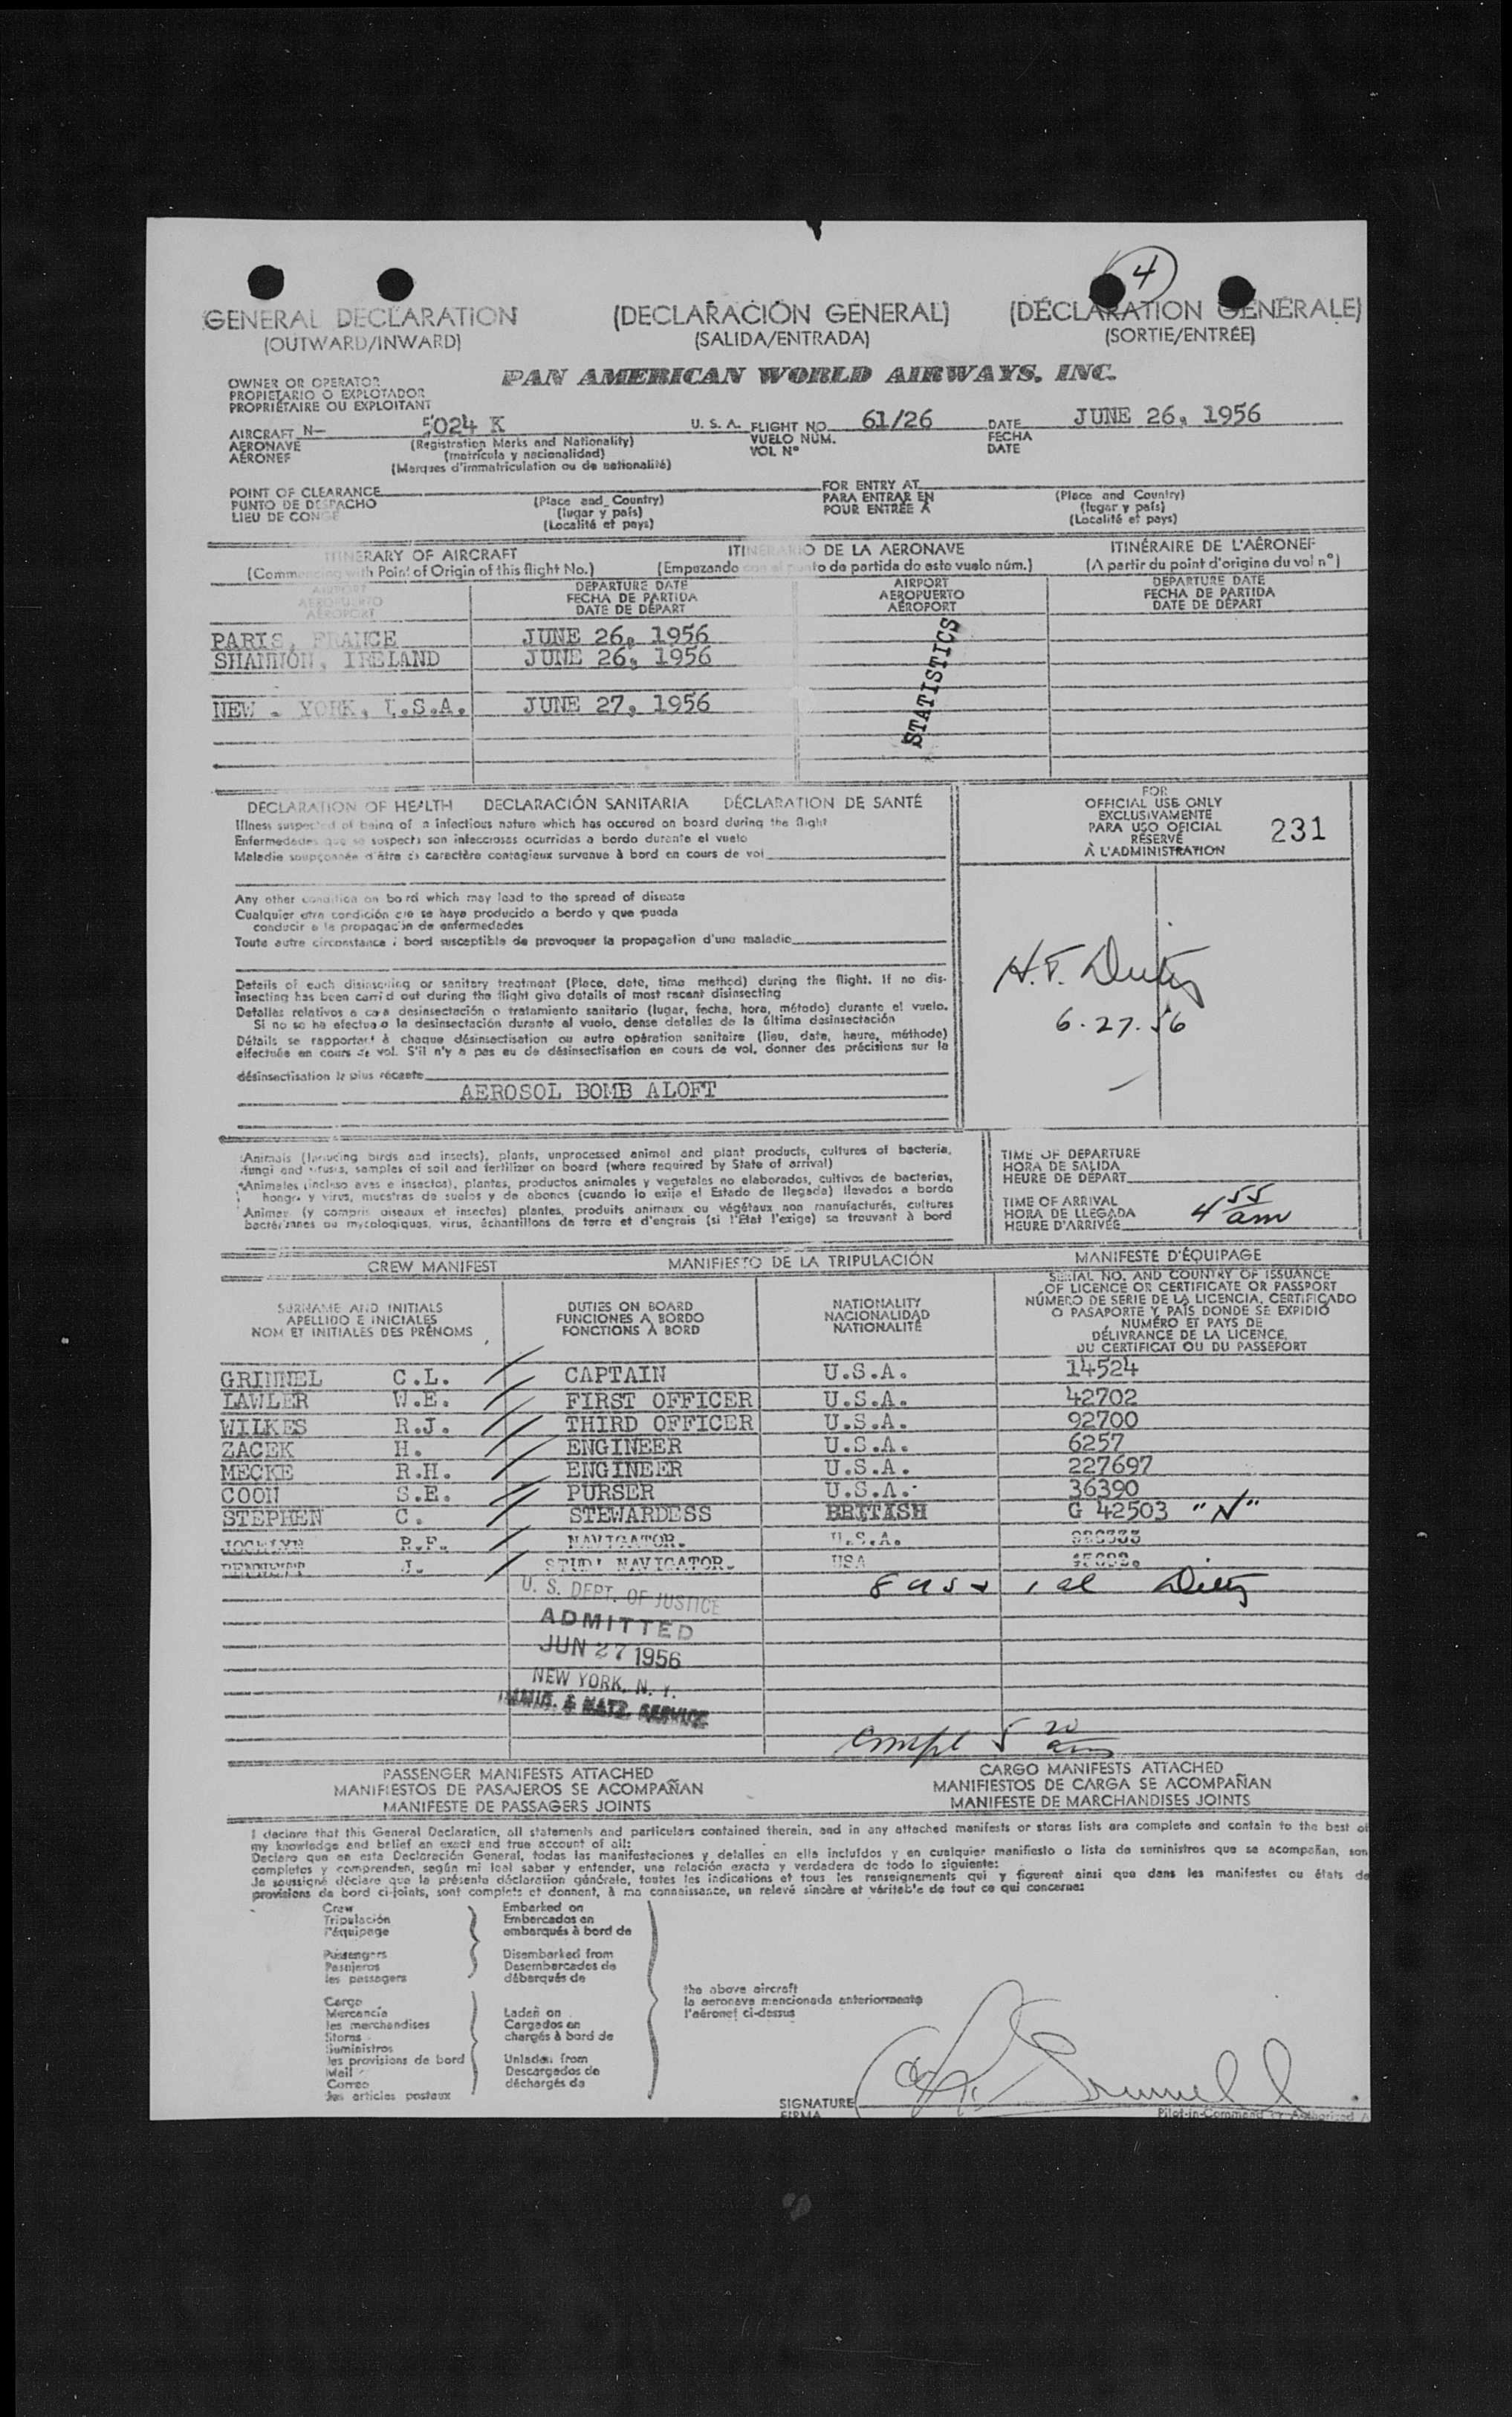 4
GENERAL DECLARATION (DECLARACIÓN GENERAL) (DÉCLARATION GÉNÉRALE)
(OUTWARD/INWARD) (SALIDA/ENTRADA) (SORTIE/ENTRÉE)
PAN AMERICAN WORLD AIRWAYS, INC.
OWNER OR OPERATOR
PROPIETARIO O EXPLOTADOR
PROPRIÉTAIRE OU EXPLOITANT
AIRCRAFT N- 5024 K U. S. A. FLIGHT NO. 61/26 DATE JUNE 26, 1956
AERONAVE (Registration Marks and Nationality) VUELO NÚM. FECHA
AÉRONEF (matrícula y nacionalidad) VOL Nº DATE
(Marques d'immatriculation ou de nationalité)
POINT OF CLEARANCE FOR ENTRY AT
PUNTO DE DESPACHO (Place and Country) PARA ENTRAR EN (Place and Country)
LIEU DE CONGÉ (lugar y país) POUR ENTRÉE À (lugar y país)
(Localité et pays) (Localité et pays)
ITINERARY OF AIRCRAFT ITINERARIO DE LA AERONAVE ITINÉRAIRE DE L'AÉRONEF
(Commencing with Point of Origin of this flight No.) (Empezando con el punto de partida de este vuelo núm.) (A partir du point d'origine du vol nº)
AIRPORT DEPARTURE DATE AIRPORT DEPARTURE DATE
AEROPUERTO FECHA DE PARTIDA AEROPUERTO FECHA DE PARTIDA
AÉROPORT DATE DE DÉPART AÉROPORT DATE DE DÉPART
PARIS, FRANCE JUNE 26, 1956
SHANNON, IRELAND JUNE 26, 1956
NEW . YORK, U.S.A. JUNE 27, 1956
STATISTICS
DECLARATION OF HEALTH DECLARACIÓN SANITARIA DÉCLARATION DE SANTÉ
Illness suspected of being of an infectious nature which has occured on board during the flight
Enfermedades que se sospecha son infecciosas ocurridas a bordo durante el vuelo
Maladie soupçonnée d'être de caractère contagieux survenue à bord en cours de vol
FOR
OFFICIAL USE ONLY
EXCLUSIVAMENTE
PARA USO OFICIAL
RÉSERVÉ
À L'ADMINISTRATION
231
Any other condition on board which may lead to the spread of disease
Cualquier otra condición que se haya producido a bordo y que pueda
conducir a la propagación de enfermedades
Toute autre circonstance à bord susceptible de provoquer la propagation d'une maladie
H.F.
6.27.56
Details of each disinsecting or sanitary treatment (Place, date, time method) during the flight. If no dis-
insecting has been carried out during the flight give details of most recent disinsecting
Detalles relativos a cada desinsectación o tratamiento sanitario (lugar, fecha, hora, método) durante el vuelo.
Si no se ha efectuado la desinsectación durante el vuelo, dense detalles de la última desinsectación
Détails se rapportant à chaque désinsectisation ou autre opération sanitaire (lieu, date, heure, méthode)
effectuée en cours de vol. S'il n'y a pas eu de désinsectisation en cours de vol, donner des précisions sur la
désinsectisation la plus récente
AEROSOL BOMB ALOFT
Animals (including birds and insects), plants, unprocessed animal and plant products, cultures of bacteria,
fungi and viruses, samples of soil and fertilizer on board (where required by State of arrival)
Animales (incluso aves e insectos), plantas, productos animales y vegetales no elaborados, cultivos de bacterias,
hongos y virus, muestras de suelos y de abonos (cuando lo exija el Estado de llegada) llevados a bordo
Animaux (y compris oiseaux et insectes) plantes, produits animaux ou végétaux non manufacturés, cultures
bactériennes ou mycologiques, virus, échantillons de terre et d'engrais (si l'État l'exige) se trouvant à bord
TIME OF DEPARTURE
HORA DE SALIDA
HEURE DE DÉPART
TIME OF ARRIVAL
HORA DE LLEGADA
HEURE D'ARRIVÉE
4 55 am
CREW MANIFEST MANIFIESTO DE LA TRIPULACIÓN MANIFESTE D'ÉQUIPAGE
SURNAME AND INITIALS
APELLIDO E INICIALES
NOM ET INITIALES DES PRÉNOMS
DUTIES ON BOARD
FUNCIONES A BORDO
FONCTIONS À BORD
NATIONALITY
NACIONALIDAD
NATIONALITÉ
SERIAL NO. AND COUNTRY OF ISSUANCE
OF LICENCE OR CERTIFICATE OR PASSPORT
NÚMERO DE SERIE DE LA LICENCIA, CERTIFICADO
O PASAPORTE Y PAÍS DONDE SE EXPIDIÓ
NUMÉRO ET PAYS DE
DÉLIVRANCE DE LA LICENCE,
DU CERTIFICAT OU DU PASSEPORT
GRINNEL C.L. CAPTAIN U.S.A. 14524
LAWLER W.E. FIRST OFFICER U.S.A. 42702
WILKES R.J. THIRD OFFICER U.S.A. 92700
ZACEK H. ENGINEER U.S.A. 6257
MECKE R.H. ENGINEER U.S.A. 227697
COON S.E. PURSER U.S.A. 36390
STEPHEN C. STEWARDESS BRITISH G 42503 "N"
R.F. NAVIGATOR. U.S.A.
BENNETT J. STUD! NAVIGATOR. USA
U. S. DEPT. OF JUSTICE
ADMITTED
JUN 27 1956
NEW YORK, N. Y.
IMMIG. & NATZ. SERVICE
compl 5 20 am
PASSENGER MANIFESTS ATTACHED CARGO MANIFESTS ATTACHED
MANIFIESTOS DE PASAJEROS SE ACOMPAÑAN MANIFIESTOS DE CARGA SE ACOMPAÑAN
MANIFESTE DE PASSAGERS JOINTS MANIFESTE DE MARCHANDISES JOINTS
I declare that this General Declaration, all statements and particulars contained therein, and in any attached manifests or stores lists are complete and contain to the best of
my knowledge and belief an exact and true account of all:
Declaro que en esta Declaración General, todas las manifestaciones y detalles en ella incluídos y en cualquier manifiesto o lista de suministros que se acompañan, son
completos y comprenden, según mi leal saber y entender, una relación exacta y verdadera de todo lo siguiente:
Je soussigné déclare que la présente déclaration générale, toutes les indications et tous les renseignements qui y figurent ainsi que dans les manifestes ou états de
provisions de bord ci-joints, sont complets et donnent, à ma connaissance, un relevé sincère et véritable de tout ce qui concerne:
Crew Embarked on
Tripulación Embarcados en
l'équipage embarqués à bord de
Passengers Disembarked from
Pasajeros Desembarcados de
les passagers débarqués de
the above aircraft
la aeronave mencionada anteriormente
l'aéronef ci-dessus
Cargo
Mercancía Laden on
les marchandises Cargados en
Stores chargés à bord de
Suministros
les provisions de bord Unladen from
Mail Descargados de
Correo déchargés de
les articles postaux
SIGNATURE
FIRMA
Pilot-in-Command or Authorized